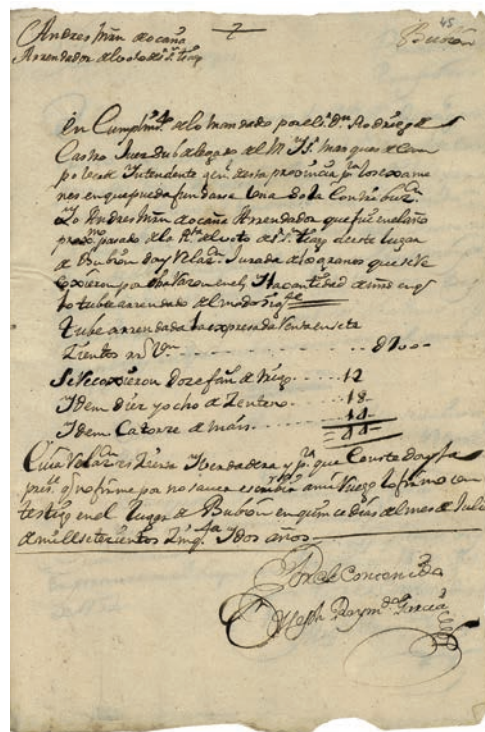 Andres Mrn de ocaña 7 45
Arrendador del voto de Sr. S.tiago Bubión
En Cumplimto. de lo mandado por el Sr. Dn. Rodrigo de
Castro Juez Subdelegado del M Ife. Sr. Marques de Cam
po Verde Intendente gen.l desta provincia pa. los exame
nes en que pueda fundarse Una Sola Contribuzn.
Yo Andres Mrn de ocaña Arrendador que fui en el año
proxmo. pasado de la Rta. del voto de Sr. S.tiago de este lugar
de Bubión doy Relazn. Jurada de los granos que se Re
coxieron por dha Razon en el, Ila cantidad de mrs en q
lo tube arrendado del modo sigte.
Tube arrendada la expresada Renta en sete
zientos rrs Vn. - - - - D700 - -
Se Recoxieron doze fans. de trigo - - - - 12
Idem diez y ocho de Zenteno - - - - 18
Idem Catorze de mais - - - - 14
44
Cuia Relazn. es Zierta I Verdadera y pa. que Conste doy la
preste. q no firme por no saver escrivir a mi Ruego lo firmo un
testigo en el lugar de Bubión en quinze dias del mes de Julio
de mill setezientos Zinqta. I dos años
Por el Contenido
Joseph Raymdo. Garcia